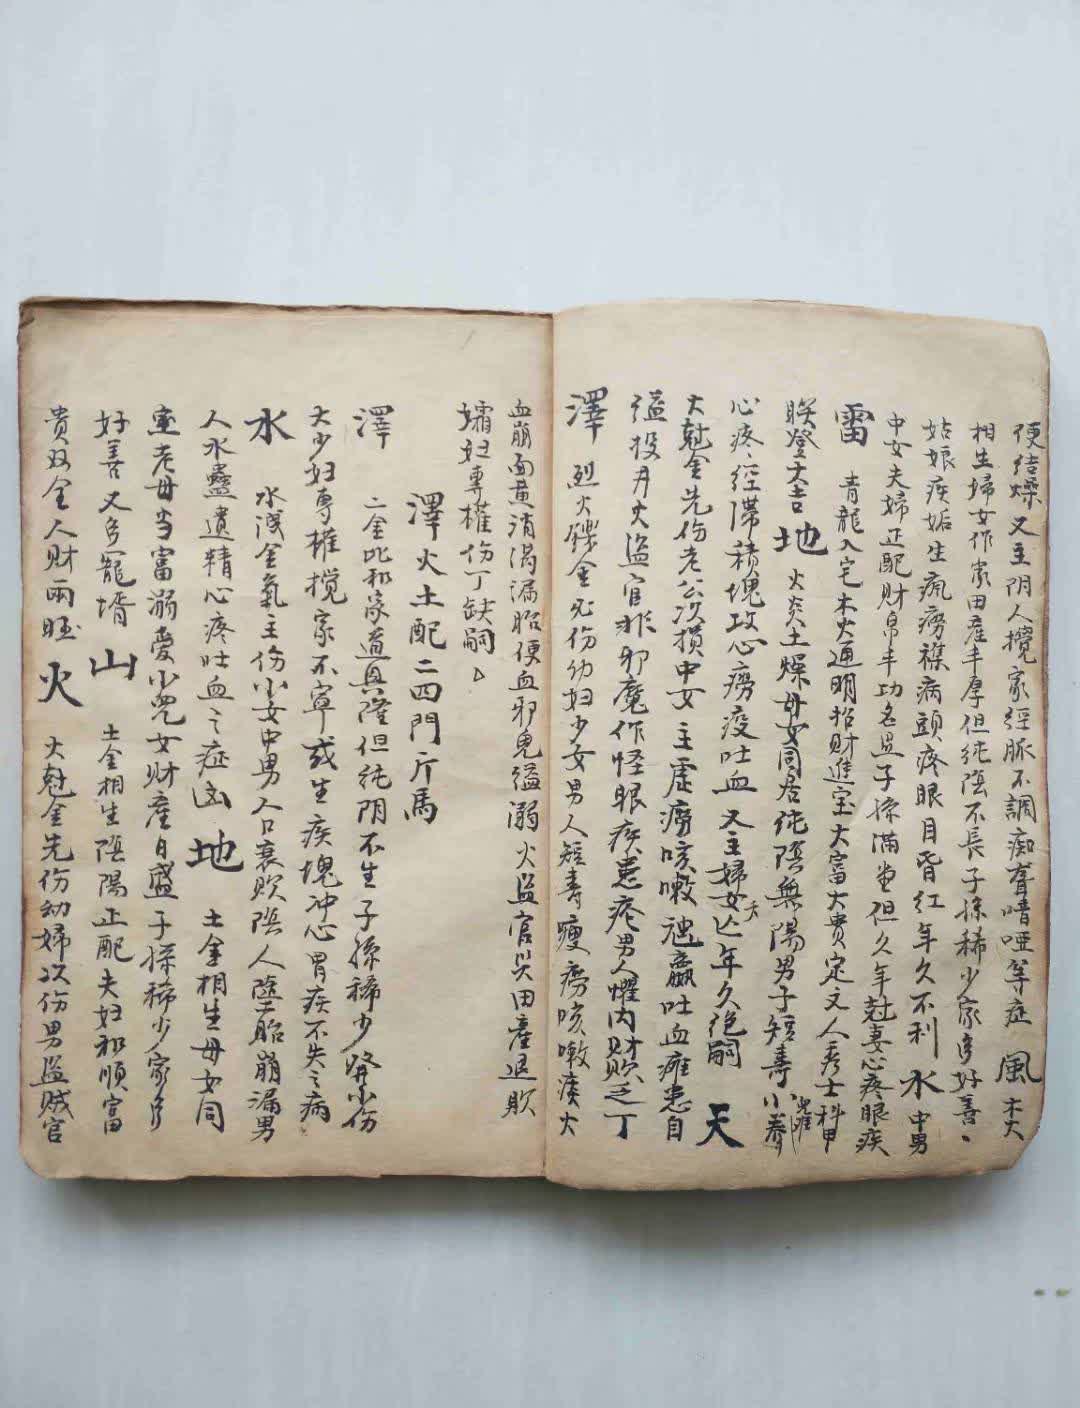 便结燥又主阴人攪家经脉不調痴聋喑哑等症 風 木火
相生婦女作家田產丰厚但纯陰不長子孫稀少家多好善、
姑娘疾妬生疯痨襍病頭疼眼目昏红年久不利 水 中男
中女夫婦正配财帛丰功名显子孫滿堂但久年尅妻心疼眼疾
雷 青龍入宅木火通明招財進宝大富大贵定文人秀士科甲
联登大吉 地 火炎土燥母女同居纯陰無陽男子短寿小兒难养
心疼经滞積塊攻心痨疫吐血又主婦女夭亡年久绝嗣 天
火尅金先伤老公次损中女主虚痨咳嗽尫羸吐血疟患自
缢投井火盗官非邪魔作怪眼疾患疮男人懼内财败乏丁
澤 烈火鑠金必伤幼妇少女男人短寿瘦痨咳嗽痰火
血崩面黄消渴漏胎便血邪鬼缢溺火盗官災田產退敗
孀妇專權伤丁缺嗣
澤火土配二四門斤馬
澤 二金比和家道興隆但纯阴不生子孫稀少發小伤
大少妇專權攪家不寧或生疾塊冲心胃疾不失之病
水 水泄金氣主伤少女中男人口衰败陰人墮胎崩漏男
人水蠱遗精心疼吐血之症凶 地 土金相生母女同
室老母当富溺愛小兒女财產日盛子孫稀少家多
好善又多寵婿 山 土金相生陰陽正配夫妇和順富
貴双全人财兩旺 火 火尅金先伤幼婦次伤男盗贼官